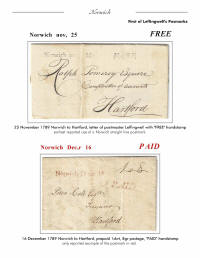 Norwich
First of Leffingwell's Postmarks
Norwich nov, 25 FREE
Norwich nov 25 FREE
Ralph Pomeroy Esquire
Comptroller of accounts
Hartford
25 November 1789 Norwich to Hartford, letter of postmaster Leffingwell with 'FREE' handstamp
earliest reported use of a Norwich straight line postmark
Norwich Dec.r 16 PAID
Norwich Dec.r 16
Esqr
Hartford
16 December 1789 Norwich to Hartford, prepaid 1dwt, 8gr postage, 'PAID' handstamp
only reported example of this postmark in red